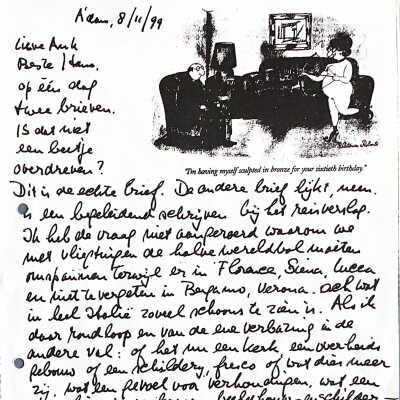 A'dam, 8/11/99
Lieve Ank
Beste Hans.
op één dag
twee brieven.
IS dat niet
een beetje
overdreven?
"I'm having myself sculpted in bronze for your sixtieth birthday."
Dit is de echte brief. De andere brief lijkt, neen.
is een begeleidend schrijven bij het reisverslag.
Ik heb de vraag niet aangeroerd waarom we
met vliegtuigen de halve wereldbol moeten
omspannen terwijl er in Florence, Siena, Lucca
en niet te vergeten in Bergamo, Verona. ach wat
in heel Italië zoveel schoons te zien is. Als ik
daar rondloop en van de ene verbazing in de
andere val: of het nu een kerk een overheids
gebouw of een schilderij, fresco of wat dies meer
zij. wat een gevoel voor verhoudingen, wat een